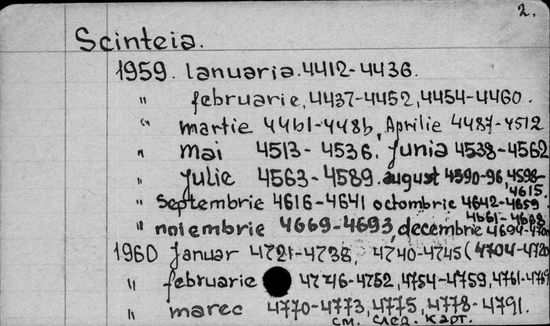 2.
Scinteia.
1959. Ianuaria. 4412-4436.
" februarie, 4437-4452, 4454-4460.
" martie 4461-4486, Aprilie 4487-4512
" mai 4513-4536. Junia 4538-4562
" Julie 4563-4589. august 4590-96, 4598-4615.
" septembrie 4616-4641 octombrie 4642-4659. 4661-4668
" noiembrie 4669-4693, decembrie 4694-4700
1960 Januar 4721-4738, 4740-4745 (4704-4720
" februarie 4746-4752, 4754-4759, 4761-4769
" marec 4770-4773, 4775, 4778-4791.
см. след. карт.